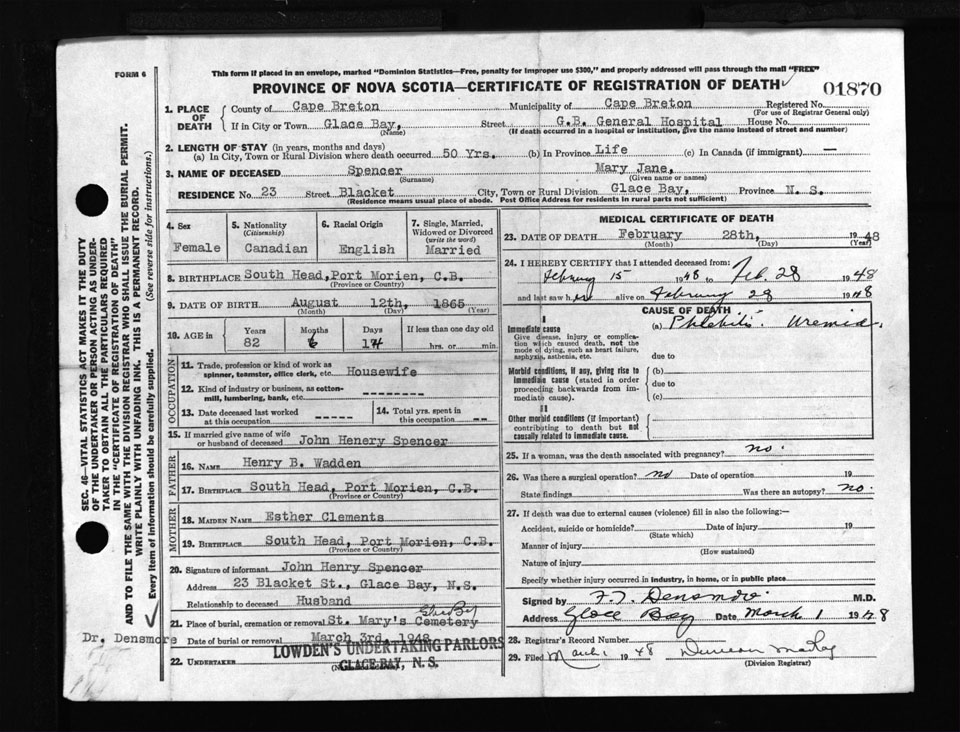 FORM 6
This form if placed in an envelope, marked "Dominion Statistics—Free, penalty for improper use $300," and properly addressed will pass through the mail "FREE"
PROVINCE OF NOVA SCOTIA—CERTIFICATE OF REGISTRATION OF DEATH
01870
1. PLACE OF DEATH
County of Cape Breton Municipality of Cape Breton Registered No.
(For use of Registrar General only)
If in City or Town Glace Bay, Street G.B. General Hospital House No.
(Name) (If death occurred in a hospital or institution, give the name instead of street and number)
2. LENGTH OF STAY (in years, months and days)
(a) In City, Town or Rural Division where death occurred 50 Yrs. (b) In Province Life (c) In Canada (if immigrant) —
3. NAME OF DECEASED Spencer Mary Jane,
(Surname) (Given name or names)
RESIDENCE No. 23 Street Blacket City, Town or Rural Division Glace Bay, Province N. S.
(Residence means usual place of abode. Post Office Address for residents in rural parts not sufficient)
SEC. 46—VITAL STATISTICS ACT MAKES IT THE DUTY
OF THE UNDERTAKER OR PERSON ACTING AS UNDER-
TAKER TO OBTAIN ALL THE PARTICULARS REQUIRED
IN THE "CERTIFICATE OF REGISTRATION OF DEATH"
AND TO FILE THE SAME WITH THE DIVISION REGISTRAR WHO SHALL ISSUE THE BURIAL PERMIT.
WRITE PLAINLY WITH UNFADING INK. THIS IS A PERMANENT RECORD.
Every item of information should be carefully supplied. (See reverse side for instructions.)
4. Sex
Female
5. Nationality
(Citizenship)
Canadian
6. Racial Origin
English
7. Single, Married,
Widowed or Divorced
(write the word)
Married
8. BIRTHPLACE South Head, Port Morien, C.B.
(Province or Country)
9. DATE OF BIRTH August 12th, 1865
(Month) (Day) (Year)
10. AGE in
Years Months Days If less than one day old
82 6 14 hrs. or min.
OCCUPATION
11. Trade, profession or kind of work as
spinner, teamster, office clerk, etc. Housewife
12. Kind of industry or business, as cotton-
mill, lumbering, bank, etc. --------
13. Date deceased last worked
at this occupation -----
14. Total yrs. spent in
this occupation ---
15. If married give name of wife
or husband of deceased John Henery Spencer
FATHER
16. NAME Henry B. Wadden
17. BIRTHPLACE South Head, Port Morien, C.B.
(Province or Country)
MOTHER
18. MAIDEN NAME Esther Clements
19. BIRTHPLACE South Head, Port Morien, C.B.
(Province or Country)
20. Signature of informant John Henry Spencer
Address 23 Blacket St., Glace Bay, N.S.
Relationship to deceased Husband
21. Place of burial, cremation or removal St. Mary's Cemetery
Date of burial or removal March 3rd, 1948
Dr. Densmore
22. UNDERTAKER
LOWDEN'S UNDERTAKING PARLORS
GLACE BAY, N. S.
MEDICAL CERTIFICATE OF DEATH
23. DATE OF DEATH February 28th, 1948
(Month) (Day) (Year)
24. I HEREBY CERTIFY that I attended deceased from:
February 15 1948 to Feb. 28 1948
and last saw her alive on February 28 1948
CAUSE OF DEATH
I
Immediate cause
Give disease, injury or complica-
tion which caused death, not the
mode of dying, such as heart failure,
asphyxia, asthenia, etc.
(a) Phlebitis. Uremia.
due to
Morbid conditions, if any, giving rise to
immediate cause (stated in order
proceeding backwards from im-
mediate cause).
(b)
due to
(c)
II
Other morbid conditions (if important)
contributing to death but not
causally related to immediate cause.
25. If a woman, was the death associated with pregnancy? no.
26. Was there a surgical operation? no Date of operation 19
State findings Was there an autopsy? no.
27. If death was due to external causes (violence) fill in also the following:—
Accident, suicide or homicide? Date of injury 19
(State which)
Manner of injury
(How sustained)
Nature of injury
Specify whether injury occurred in industry, in home, or in public place
Signed by Densmore M.D.
Address Glace Bay Date March 1 1948
28. Registrar's Record Number
29. Filed March 1 1948 Duncan
(Division Registrar)